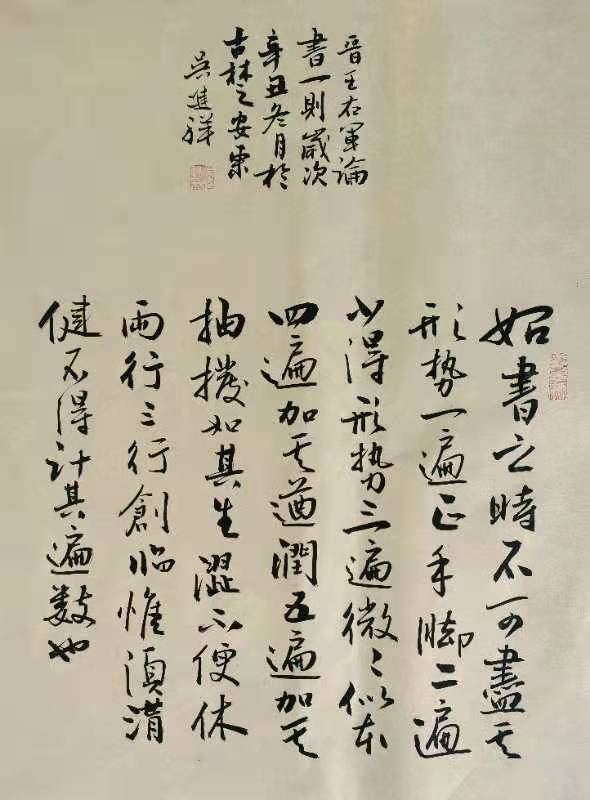 始書之時不可盡其
形势一遍正手脚二遍
少得形势三遍微々似本
四遍加其遒潤五遍加其
抽撥如其生澀不便休
兩行三行創臨惟須滑
健不得计其遍数也
晋王右軍論
書一則歲次
辛丑冬月於
吉林之安栗
吴進祥